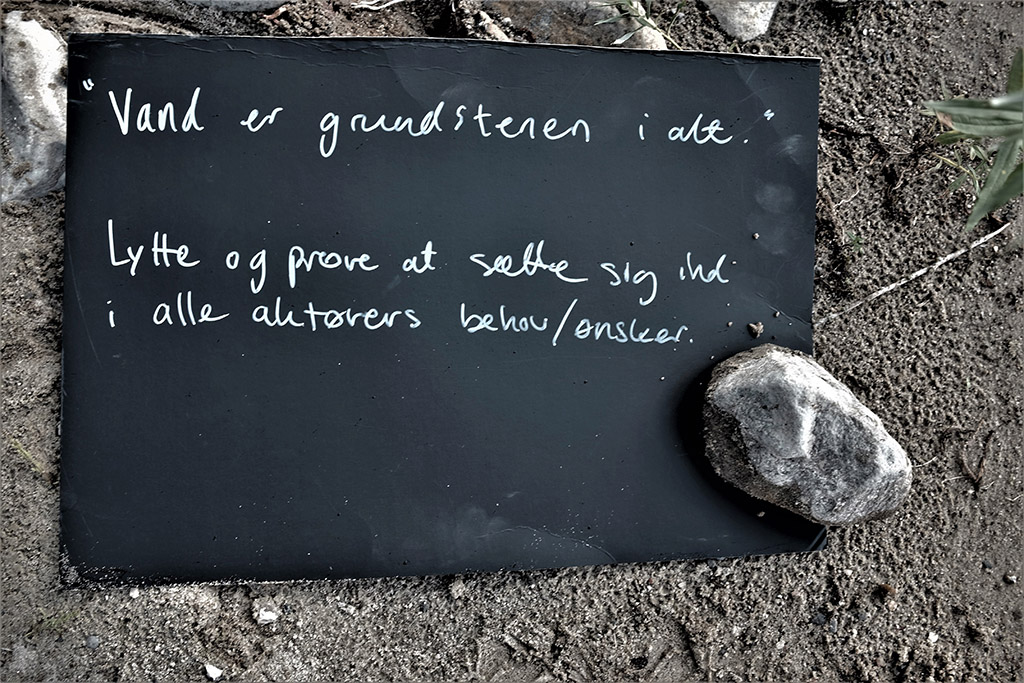 "Vand er grundstenen i alt."
Lytte og prøve at sætte sig ind
i alle aktørers behov/ønsker.